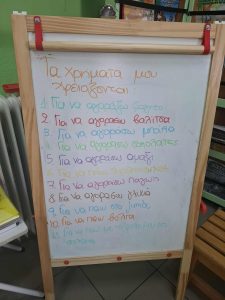 Τα χρήματα μου
χρειάζονται
1. Για να αγοράσω
2. Για να αγοράσω βαλίτσα
3. Για να αγοράσω μπάλα
4. Για να αγοράσω σοκολάτες
5. Για να αγοράσω αμάξι
6. Για να
7. Για να αγοράσω παγωτό
8. Για να αγοράσω γλυκά
9. Για να πάω στο
10. Για να πάω βόλτα
11. Για να πάω με